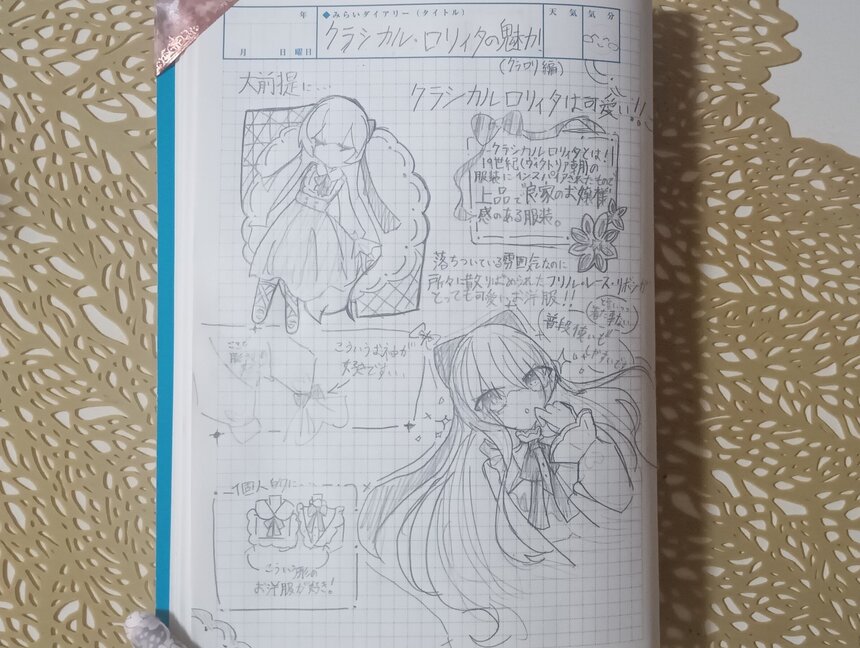 年
月 日 曜日
◆みらいダイアリー(タイトル)
天気
気分
クラシカル・ロリィタの魅力
(クラロリ編)
大前提に…
クラシカルロリィタは可愛い!!
クラシカルロリィタとは!
19世紀(ヴィクトリア
服装にインスパイアされたもので
上品で良家のお嬢様
感のある服装。
落ちついている雰囲気なのに
所々に散りばめられたフリル・レース・リボンが
とっても可愛いお洋服!!
普段使いも
こういうお袖が
大発です…
個人的に…
こういう形の
お洋服が好き!